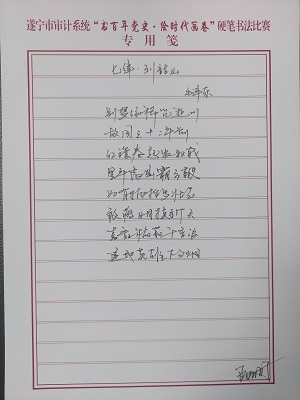 遂宁市审计系统“书百年党史·绘时代画卷”硬笔书法比赛
专用笺
七律·到韶山
毛泽东
别梦依稀咒逝川
故园三十二年前
红旗卷起农奴戟
黑手高悬霸主鞭
为有牺牲多壮志
敢教日月换新天
喜看稻菽千重浪
遍地英雄下夕烟